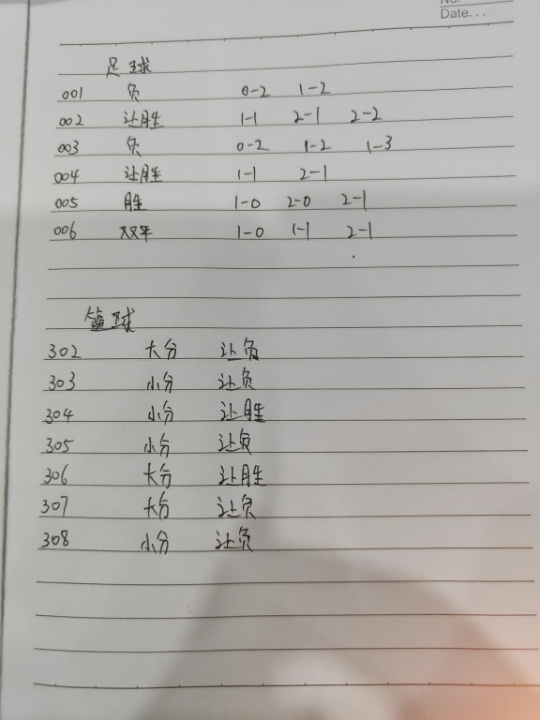 No.
Date...
足球
001 负 0-2 1-2
002 让胜 1-1 2-1 2-2
003 负 0-2 1-2 1-3
004 让胜 1-1 2-1
005 胜 1-0 2-0 2-1
006 双平 1-0 1-1 2-1
篮球
302 大分 让负
303 小分 让负
304 小分 让胜
305 小分 让负
306 大分 让胜
307 大分 让负
308 小分 让负